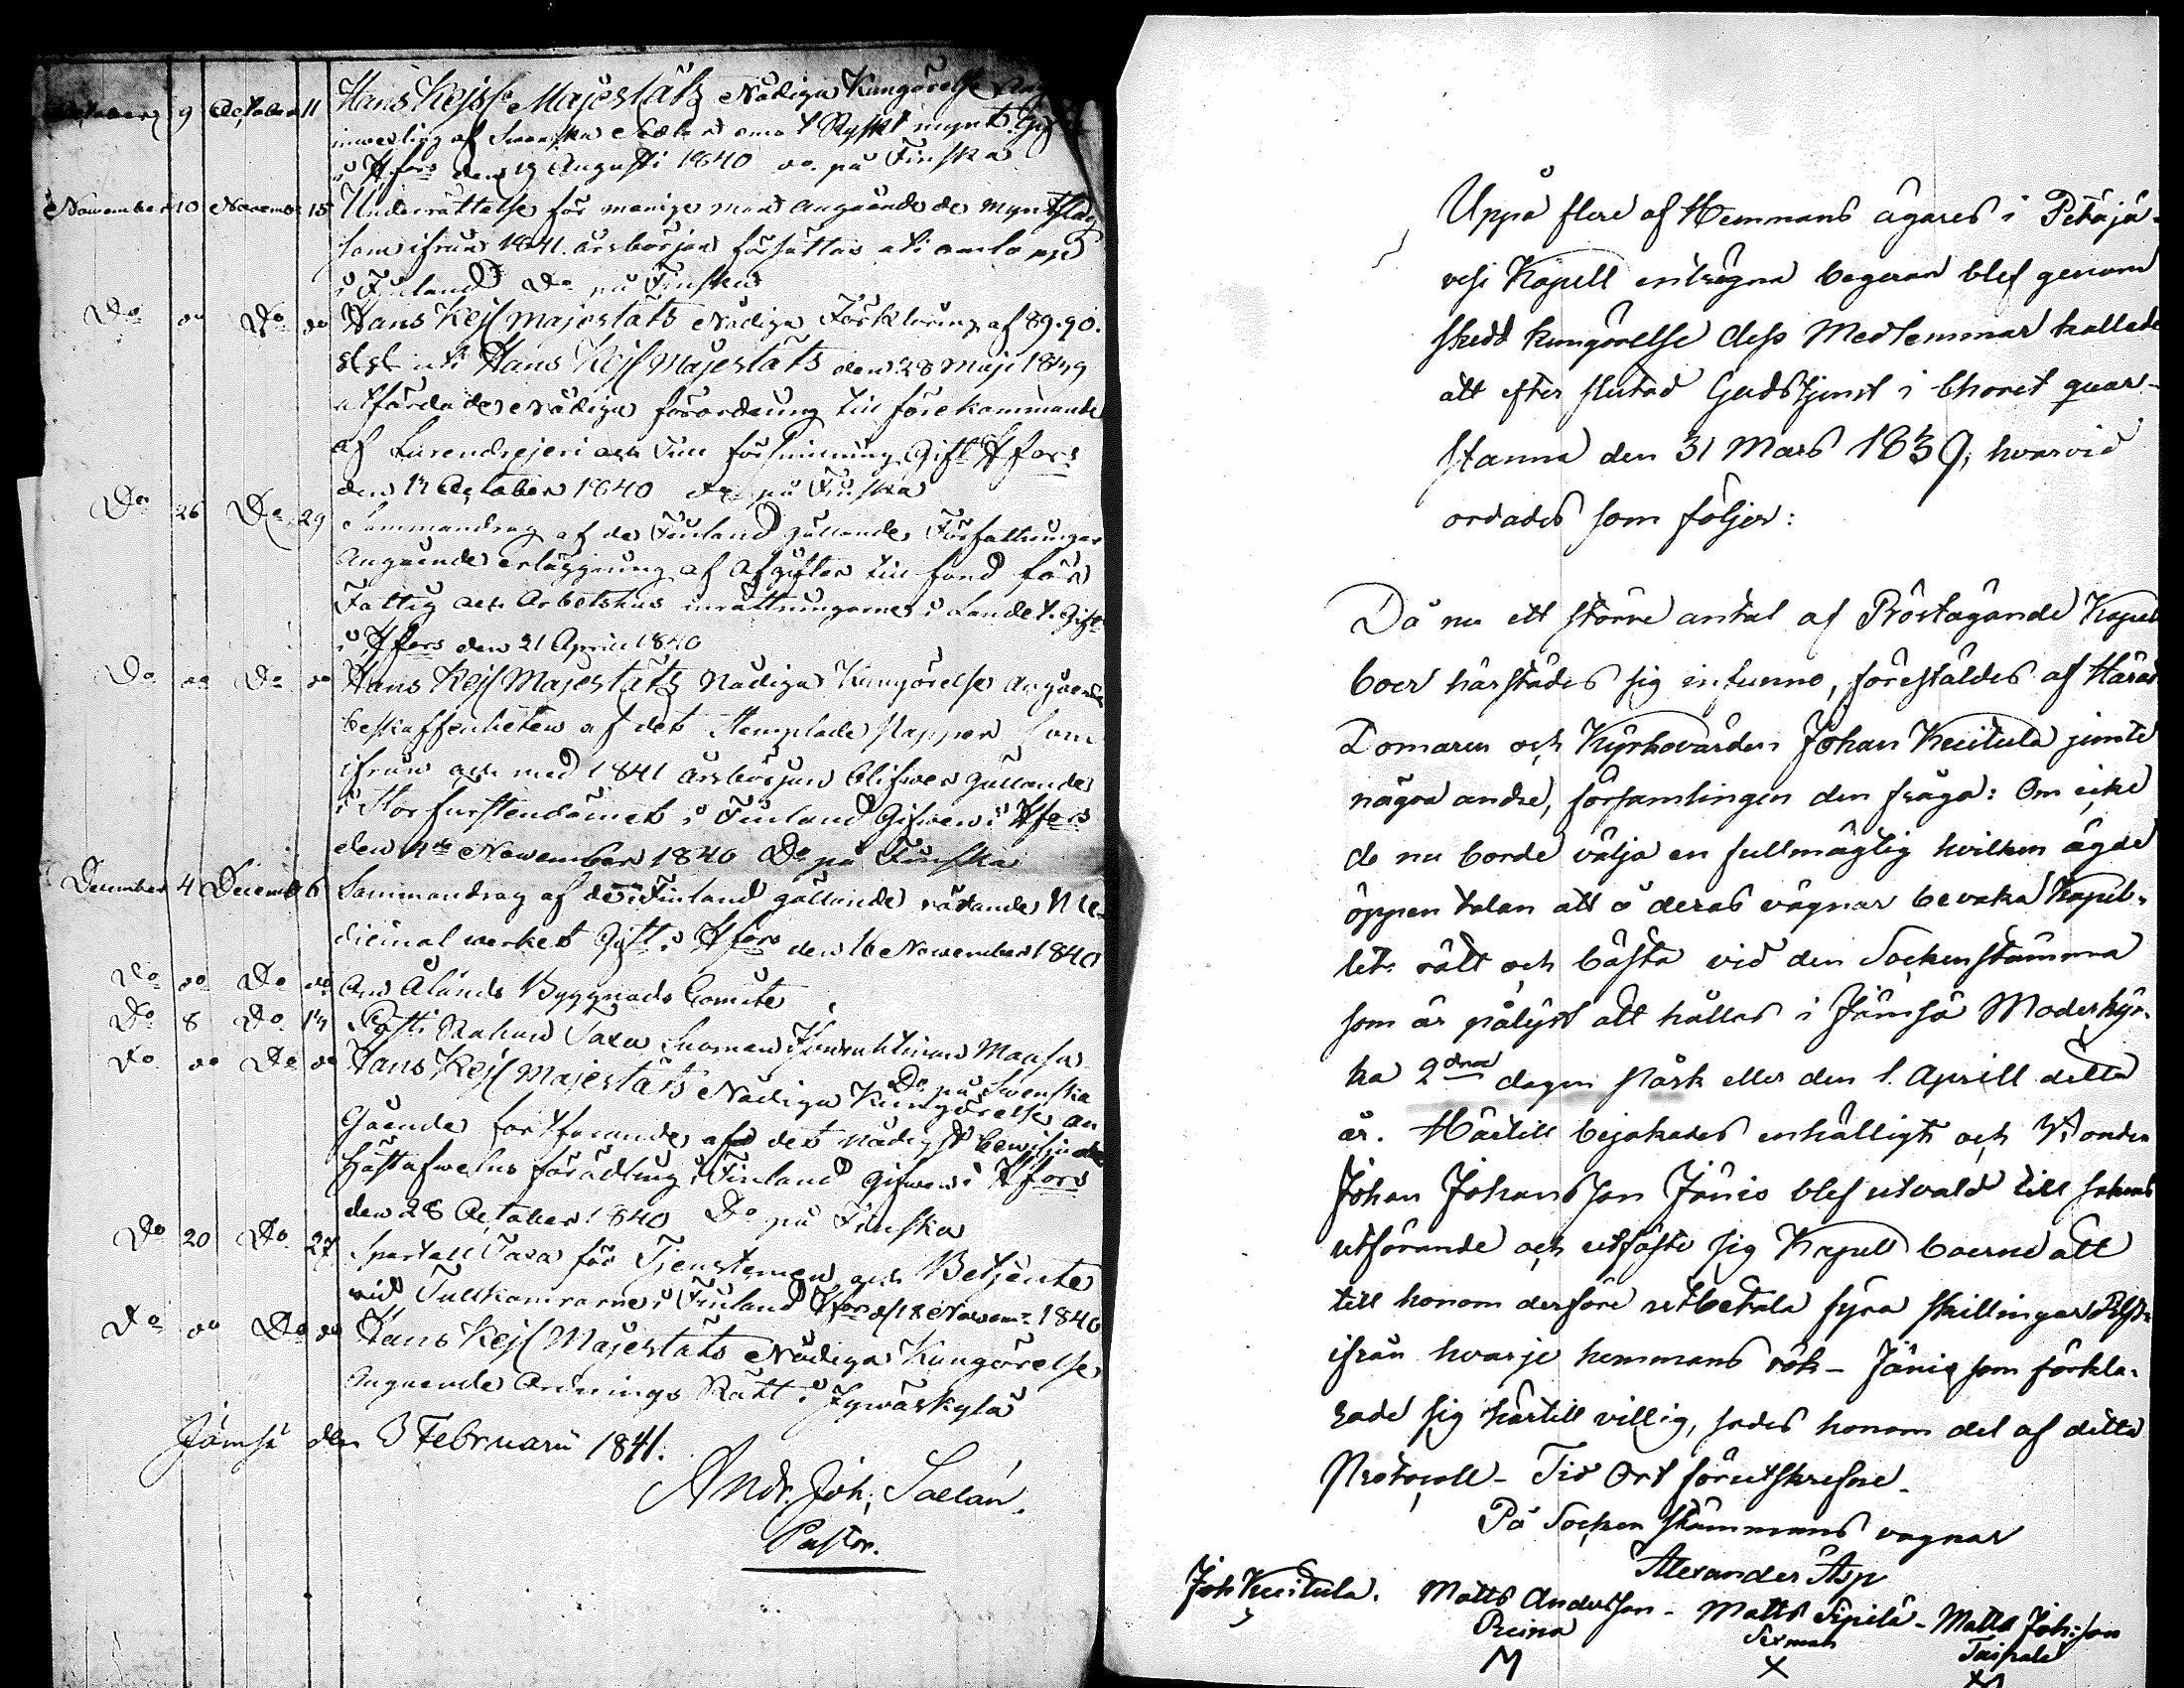 October 9 October 11 Hans Kejs:s Majestäts Nådiga Kungörelse Ang
inwexling af Svenska Sedlar emot Ryskt mynt. Gif
i H:fors den 19 Augusti 1840 do på Finska
November 10 Novemb 15 Underrättelse för menige man angående de myntslag
som ifrån 1841 årsbörjan försättas uti omlopp
i Finland Do på Finska
Do do Do do Hans Kejs Majestäts Nådiga Förklaring af 89. 90.
§§ uti Hans Kejs Majestäts den 28 Maji 18
utfärdade Nådiga förordning till förekommande
af Lurendrejeri och Tull försnillning Gift H:fors
den 14 October 1840 do på Finska
Do 26 Do 29 Sammandrag af de Finland gällande Författningar
Angående erläggning af Afgifter till fond för
Fattig och Arbetshus inrättningarne i Landet. Gift
i H:fors den 21 April 1840
Do do Do do Hans Kejs Majestäts Nådiga Kungörelse angående
beskaffenheten af det Stemplade Papper som
ifrån och med 1841 årsbörjan blifwer gällande
i Storfurstendömet i Finland Gifwen i H:fors
den 4de November 1840 Do på Finska
December 4 Decemb 6 Sammandrag af de i Finland gällande rörande Me-
dicinal werket Gift i H:fors den 16 November 1840
Do do Do do Om Ålands Byggnads Comité
Do 8 Do 13 Posti Rahan Taxa Suomen Isoruhtinan Maasa
Do på Swenska
Do do Do do Hans Kejs Majestäts Nådiga Kungörelse an
Gående fortfarande af det nådigst bewiljade
Hästafwelns förädling i Finland Gifwen i H:fors
den 28 October 1840 Do på Finska
Do 20 Do 27 Sportell Taxa för Tjenstemen och Betjente
vid Tullkamrarne i Finland H:fors d 18 Novem: 1840
Do do Do do Hans Kejs Majestäts Nådiga Kungörelse
Angående Ordnings Rätt i Jywäskylä
Jämsä den 3 Februarii 1841.
Andr. Joh: Sallán.
Pastor.
Uppå flere af Hemmans ägares i Petäjä-
vesi Kapell enträgna begeran blef genom
skedd kungörelse dess Medlemmar kallade
att efter slutad Gudstjenst i choret quar-
stanna den 31 Mars 1839, hvarvid
ordades som följer:
Då nu ett större antal af Röstägande Kapell
boer härstädes sig infunno, föreställdes af Härads
Domaren och Kyrkovärden Johan Kuitula jemte
några andre, församlingen den fråga: Om icke
de nu borde välja en fullmägtig hvilken ägde
öppen talan att å deras vägnar bevaka Kapel-
lets rätt och bästa vid den Sockenstämma
som är pålyst att hållas i Jämsä Moderkyr-
ka 2dra dagen Påsk eller den 1. Aprill detta
år. Härtill bejakades enhälligt och Bonden
Johan Johansson Jänis blef utvald till sakens
utförande och utfäste sig Kapell boerne att
till honom derföre utbetala fyra skillingar
ifrån hvarje hemmans rök - Jänis som förkla-
rade sig härtill villig, gafs honom del af detta
Protocoll - Tid Ort förutskrefne.
På Socken stämmans vägnar
Alexander Asp
Joh Kuitula. Matts Andersson - Matts Sipilä - Matts Joh:son
Reina Sexman Taipale
M X